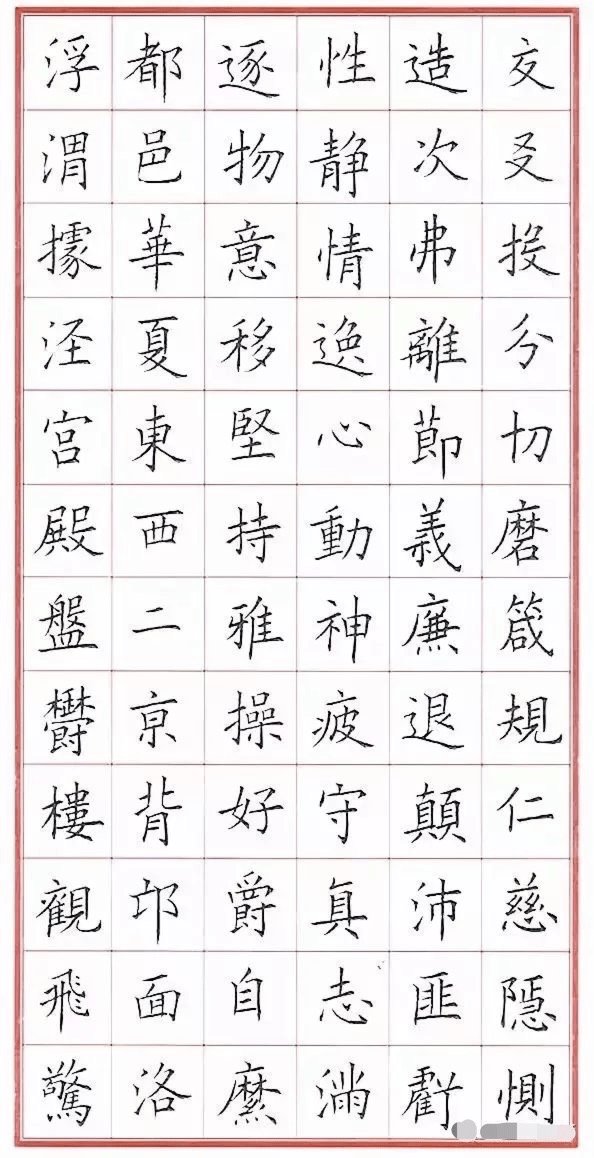 交友投分切磨箴規仁慈隱惻
造次弗離節義廉退顛沛匪虧
性静情逸心動神疲守真志滿
逐物意移堅持雅操好爵自縻
都邑華夏東西二亰背邙面洛
浮渭據涇宫殿盤鬱樓觀飛驚